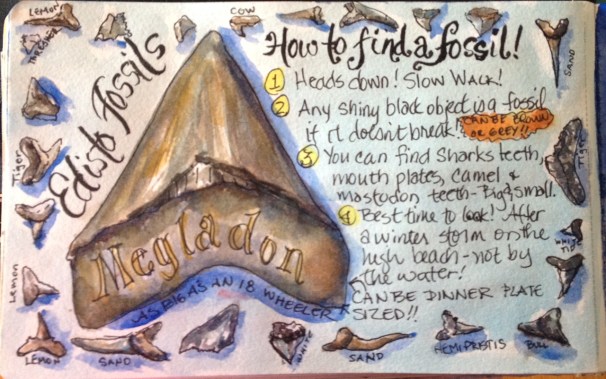 LEMON
COW
THRESHER
SAND
Edisto Fossils
How to find a fossil!
1 Heads down! Slow Walk!
2 Any shiny black object is a fossil
if it doesn't break!
CAN BE BROWN
OR GREY!!
3 You can find Sharks teeth,
mouth plates, camel &
mastodon teeth - Big & small.
4 Best time to look! After
a winter storm on the
high beach - not by
the water!
CAN BE DINNER PLATE
SIZED!!
Megladon
AS BIG AS AN 18 WHEELER
Tiger
Tiger
WHITE
TIP
Lemon
LEMON
SAND
WHITE
SAND
HEMIPRISTIS
BULL